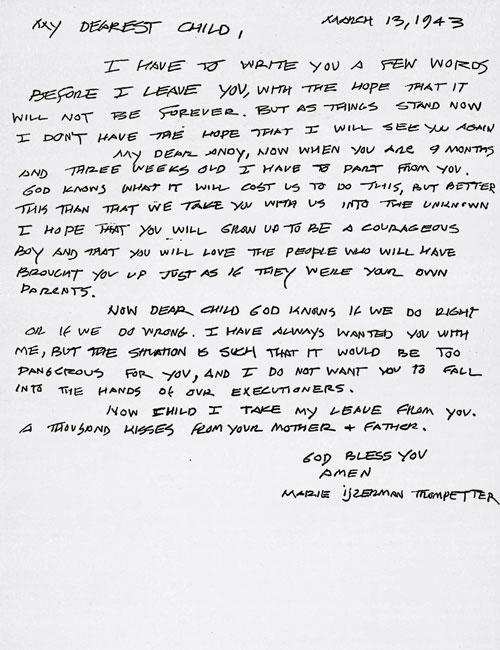 MY DEAREST CHILD, MARCH 13, 1943
I HAVE TO WRITE YOU A FEW WORDS
BEFORE I LEAVE YOU, WITH THE HOPE THAT IT
WILL NOT BE FOREVER. BUT AS THINGS STAND NOW
I DON'T HAVE THE HOPE THAT I WILL SEE YOU AGAIN
MY DEAR ANDY, NOW WHEN YOU ARE 9 MONTHS
AND THREE WEEKS OLD I HAVE TO PART FROM YOU.
GOD KNOWS WHAT IT WILL COST US TO DO THIS, BUT BETTER
THIS THAN THAT WE TAKE YOU WITH US INTO THE UNKNOWN
I HOPE THAT YOU WILL GROW UP TO BE A COURAGEOUS
BOY AND THAT YOU WILL LOVE THE PEOPLE WHO WILL HAVE
BROUGHT YOU UP JUST AS IF THEY WERE YOUR OWN
PARENTS.
NOW DEAR CHILD GOD KNOWS IF WE DO RIGHT
OR IF WE DO WRONG. I HAVE ALWAYS WANTED YOU WITH
ME, BUT THE SITUATION IS SUCH THAT IT WOULD BE TOO
DANGEROUS FOR YOU, AND I DO NOT WANT YOU TO FALL
INTO THE HANDS OF OUR EXECUTIONERS.
NOW CHILD I TAKE MY LEAVE FROM YOU.
A THOUSAND KISSES FROM YOUR MOTHER + FATHER.
GOD BLESS YOU
AMEN
MARIE IJZERMAN TROMPETTER